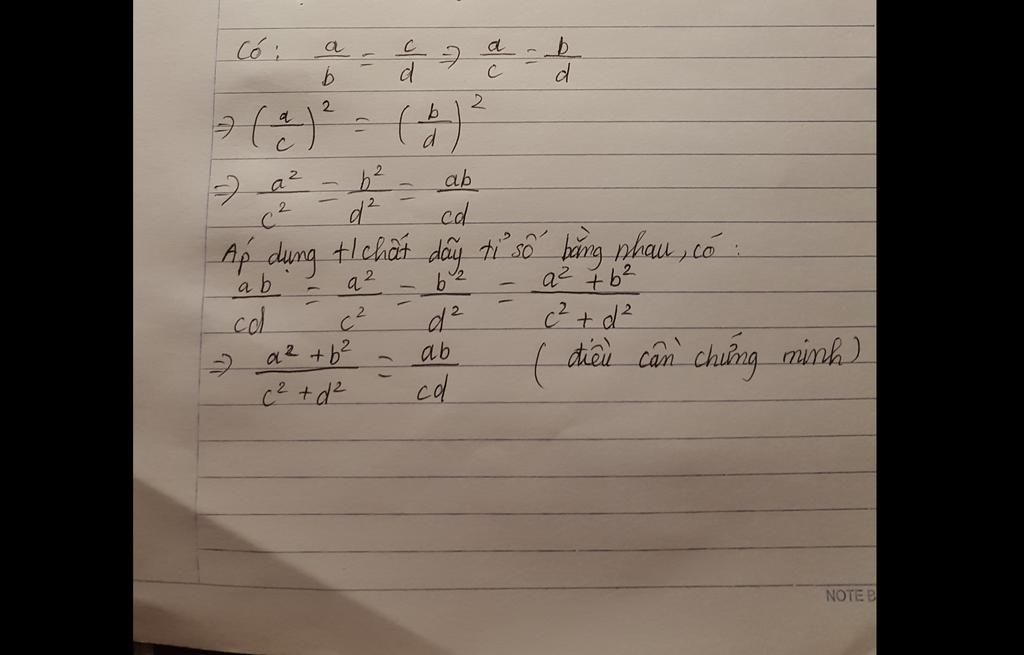 Có: a/b = c/d ⇒ a/c = b/d
⇒ (a/c)² = (b/d)²
⇒ a²/c² = b²/d² = ab/cd
Áp dụng t/chất dãy tỉ số bằng nhau, có:
ab/cd = a²/c² = b²/d² = (a² + b²)/(c² + d²)
⇒ (a² + b²)/(c² + d²) = ab/cd (điều cần chứng minh)
NOTE B